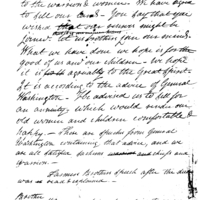 to the warriors & women. We have agreed
to sell our land. You say that you
wish
found. Let us brothers our minds.
What we have done we hope is for the
good of us and our children. We hope
it is agreeably to the Great Spirit.
It is according to the advice of General
Washington. He advised us to sell for
an annuity, which would render our
old women and children comfortable &
happy. There are speeches from General
Washington containing that advice, and we
are all satisfied sachems and chiefs and
warriors.
Farmers Brothers speech after the deed
was read & explained
Brother